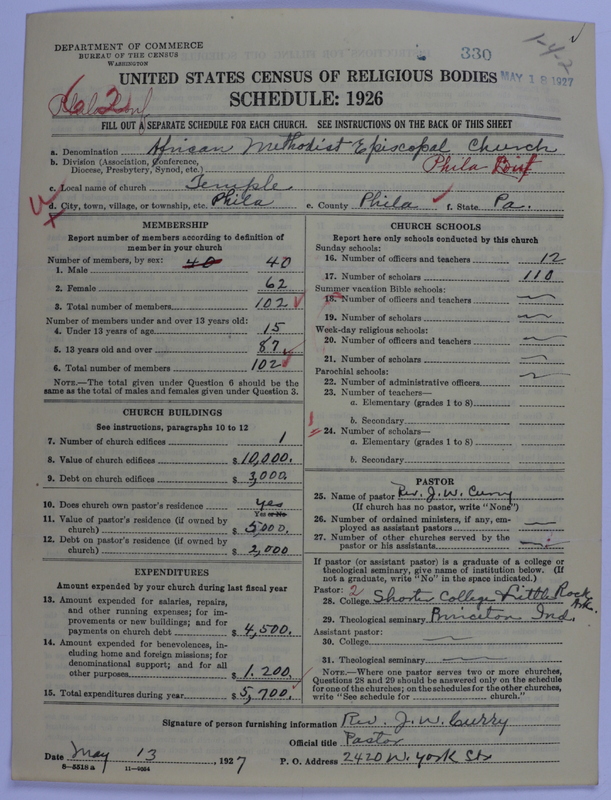 DEPARTMENT OF COMMERCE
BUREAU OF THE CENSUS
WASHINGTON
330
1-4-2
MAY 18 1927
UNITED STATES CENSUS OF RELIGIOUS BODIES
SCHEDULE: 1926
62
FILL OUT A SEPARATE SCHEDULE FOR EACH CHURCH. SEE INSTRUCTIONS ON THE BACK OF THIS SHEET
a. Denomination African Methodist Episcopal Church
b. Division (Association, Conference, Diocese, Presbytery, Synod, etc.) Phila
c. Local name of church Temple
d. City, town, village, or township, etc. Phila e. County Phila f. State Pa.
MEMBERSHIP
Report number of members according to definition of
member in your church
Number of members, by sex: 40
1. Male 40
2. Female 62
3. Total number of members 102
Number of members under and over 13 years old:
4. Under 13 years of age 15
5. 13 years old and over 87
6. Total number of members 102
NOTE.—The total given under Question 6 should be the
same as the total of males and females given under Question 3.
CHURCH BUILDINGS
See instructions, paragraphs 10 to 12
7. Number of church edifices 1
8. Value of church edifices $ 10,000.
9. Debt on church edifices $ 3,000.
10. Does church own pastor's residence yes
Yes or No
11. Value of pastor's residence (if owned by
church) $ 5000.
12. Debt on pastor's residence (if owned by
church) $ 2,000
EXPENDITURES
Amount expended by your church during last fiscal year
13. Amount expended for salaries, repairs,
and other running expenses; for im-
provements or new buildings; and for
payments on church debt $ 4,500.
14. Amount expended for benevolences, in-
cluding home and foreign missions; for
denominational support; and for all
other purposes $ 1.200.
15. Total expenditures during year $ 5,700.
CHURCH SCHOOLS
Report here only schools conducted by this church
Sunday schools:
16. Number of officers and teachers 12
17. Number of scholars 110
Summer vacation Bible schools:
18. Number of officers and teachers
19. Number of scholars
Week-day religious schools:
20. Number of officers and teachers
21. Number of scholars
Parochial schools:
22. Number of administrative officers
23. Number of teachers—
a. Elementary (grades 1 to 8)
b. Secondary
24. Number of scholars—
a. Elementary (grades 1 to 8)
b. Secondary
PASTOR
25. Name of pastor Rev. J. W. Curry
(If church has no pastor, write "None")
26. Number of ordained ministers, if any, em-
ployed as assistant pastors
27. Number of other churches served by the
pastor or his assistants
If pastor (or assistant pastor) is a graduate of a college or
theological seminary, give name of institution below. (If
not a graduate, write "No" in the space indicated.)
Pastor: 2
28. College Shorter College Little Rock Ark.
29. Theological seminary Princeton Ind.
Assistant pastor:
30. College
31. Theological seminary
NOTE.—Where one pastor serves two or more churches,
Questions 28 and 29 should be answered only on the schedule
for one of the churches; on the schedules for the other churches,
write "See schedule for church."
Signature of person furnishing information Rev. J. W. Curry
Official title Pastor
Date May 13, 1927 P. O. Address 2420 W. York St
8—5518 a 11—9034